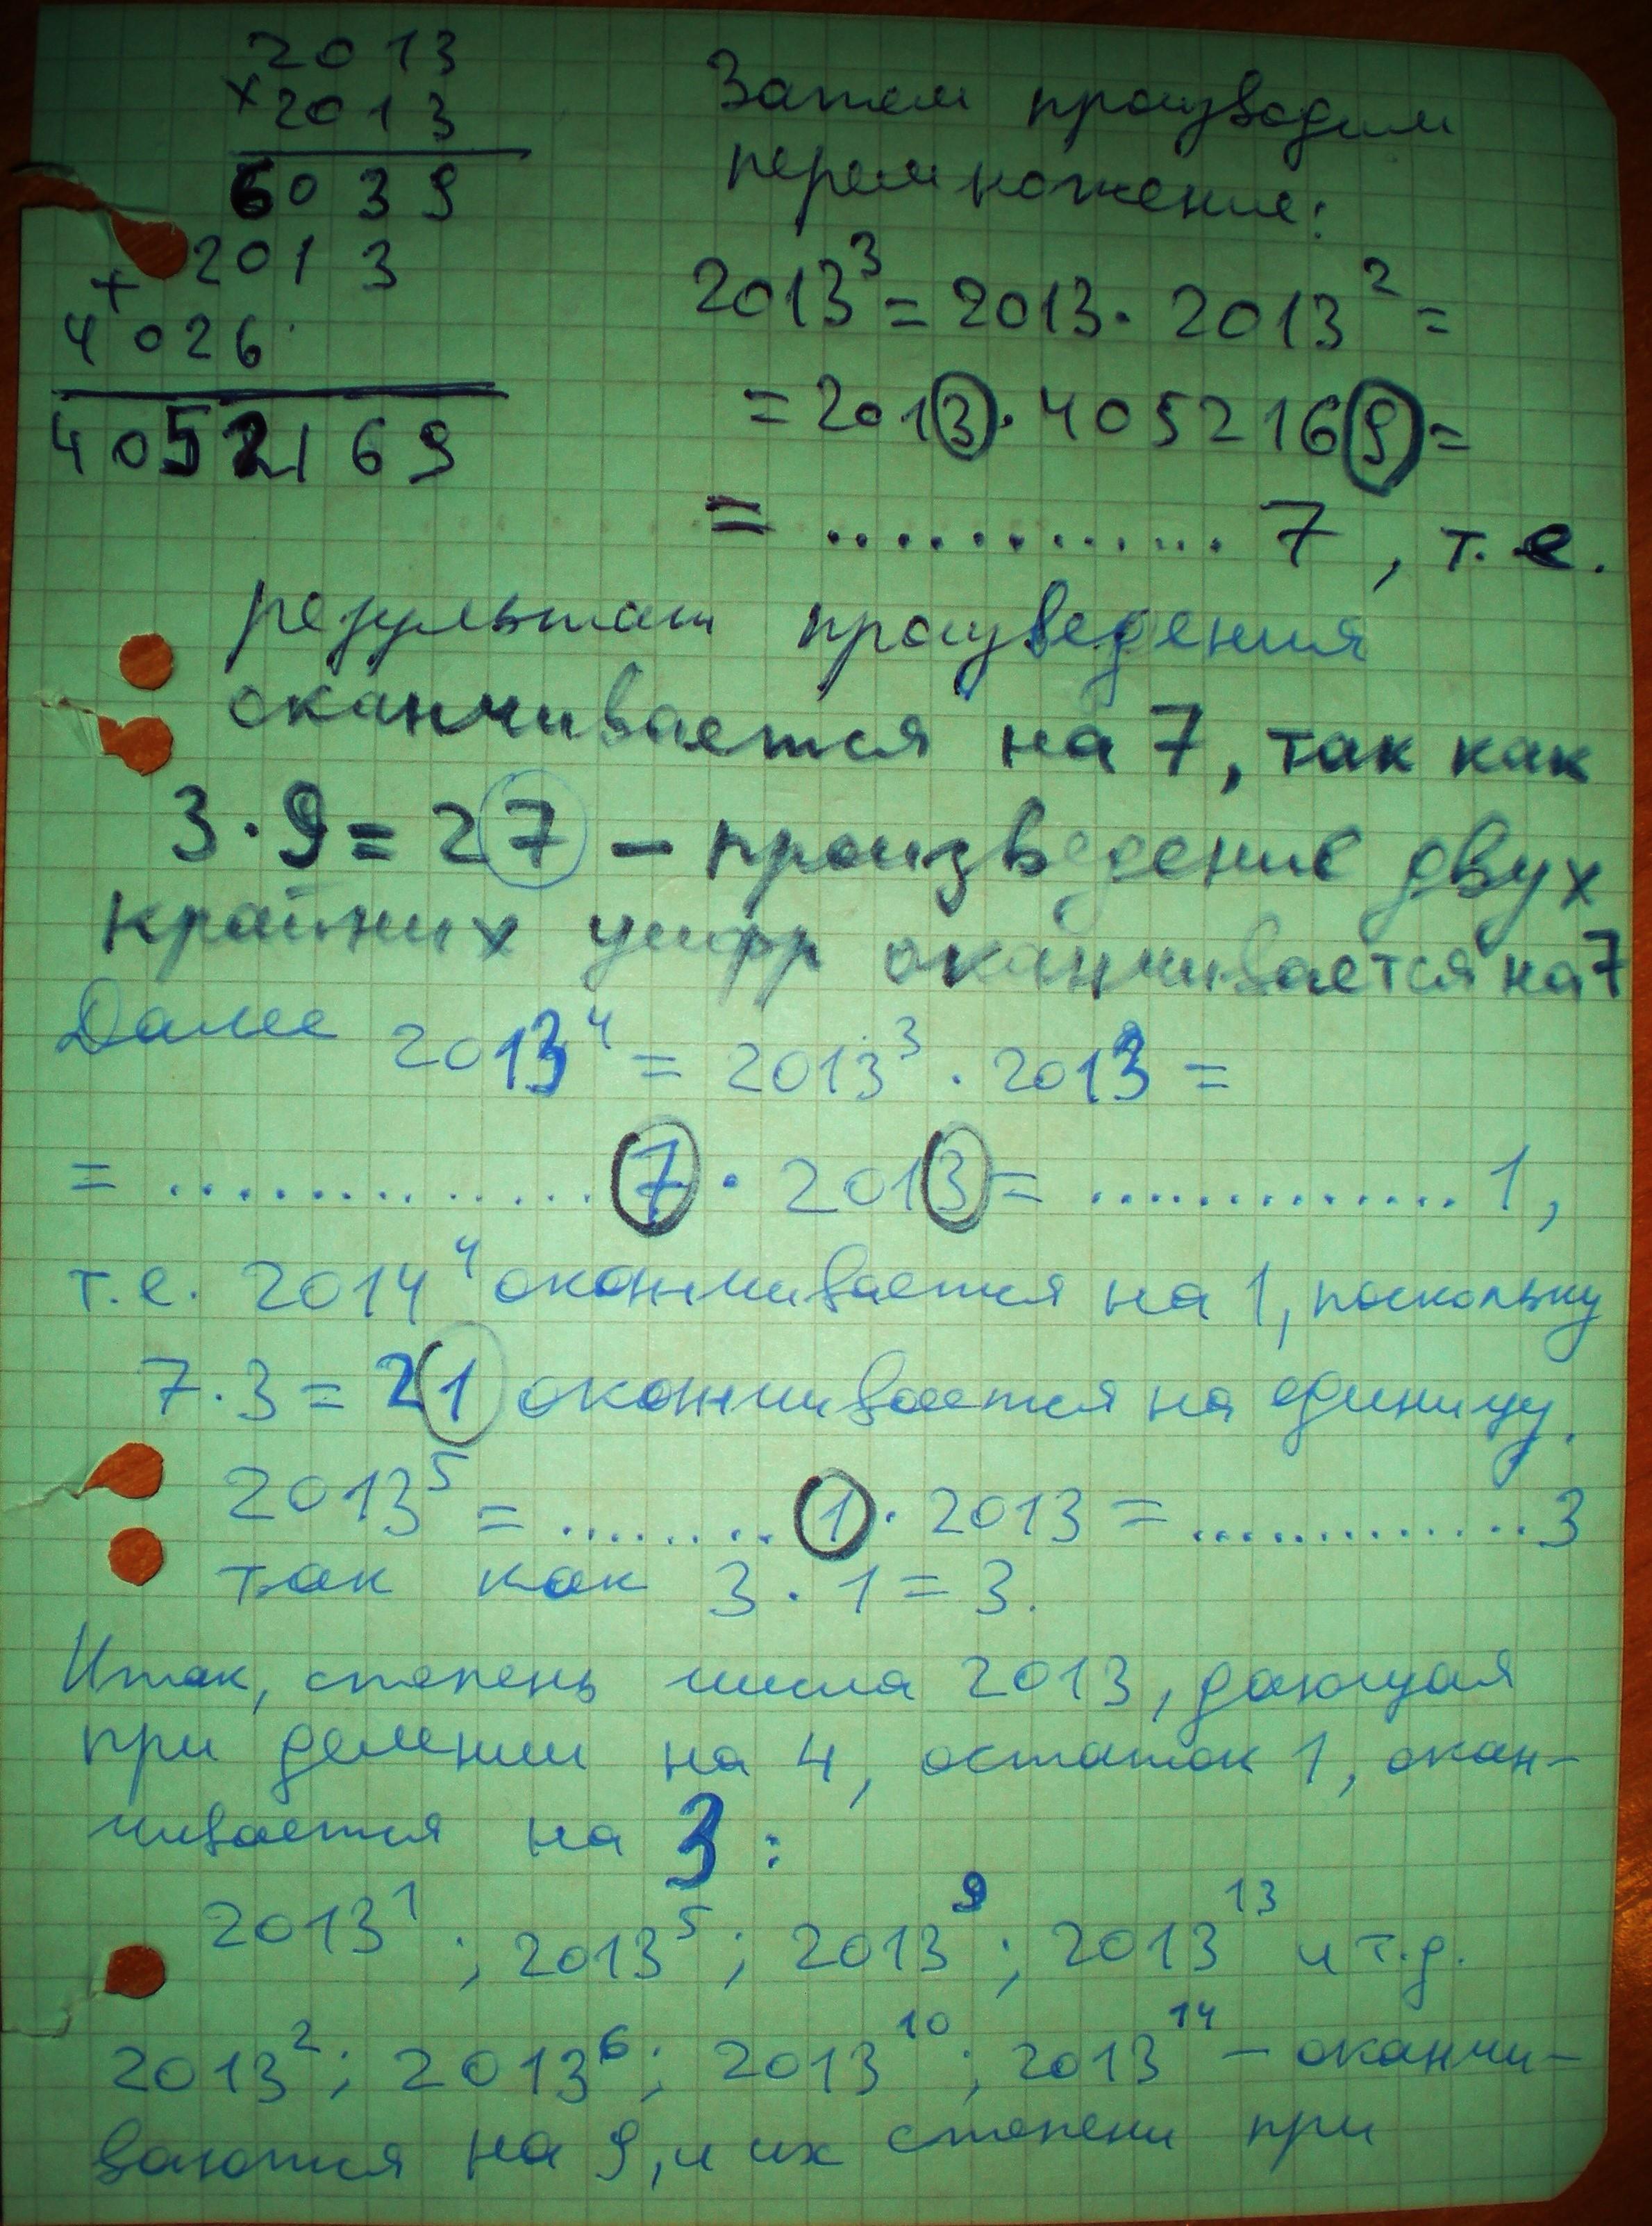 2013
×2013
6039
+2013
4026
4052169
Затем производим
перемножение:
2013³ = 2013 · 2013² =
= 2013 · 4052169 =
= ............. 7, т.е.
результат произведения
оканчивается на 7, так как
3 · 9 = 27 – произведение двух
крайних цифр оканчивается на 7
Далее 2013⁴ = 2013³ · 2013 =
= ............... 7 · 2013 = ............. 1,
т.е. 2014⁴ оканчивается на 1, поскольку
7 · 3 = 21 оканчивается на единицу.
2013⁵ = ........ 1 · 2013 = ............. 3
так как 3 · 1 = 3.
Итак, степень числа 2013, дающая
при делении на 4, остаток 1, окан-
чивается на 3:
2013¹; 2013⁵; 2013⁹; 2013¹³ и т.д.
2013²; 2013⁶; 2013¹⁰; 2013¹⁴ – оканчи-
ваются на 9, и их степени при